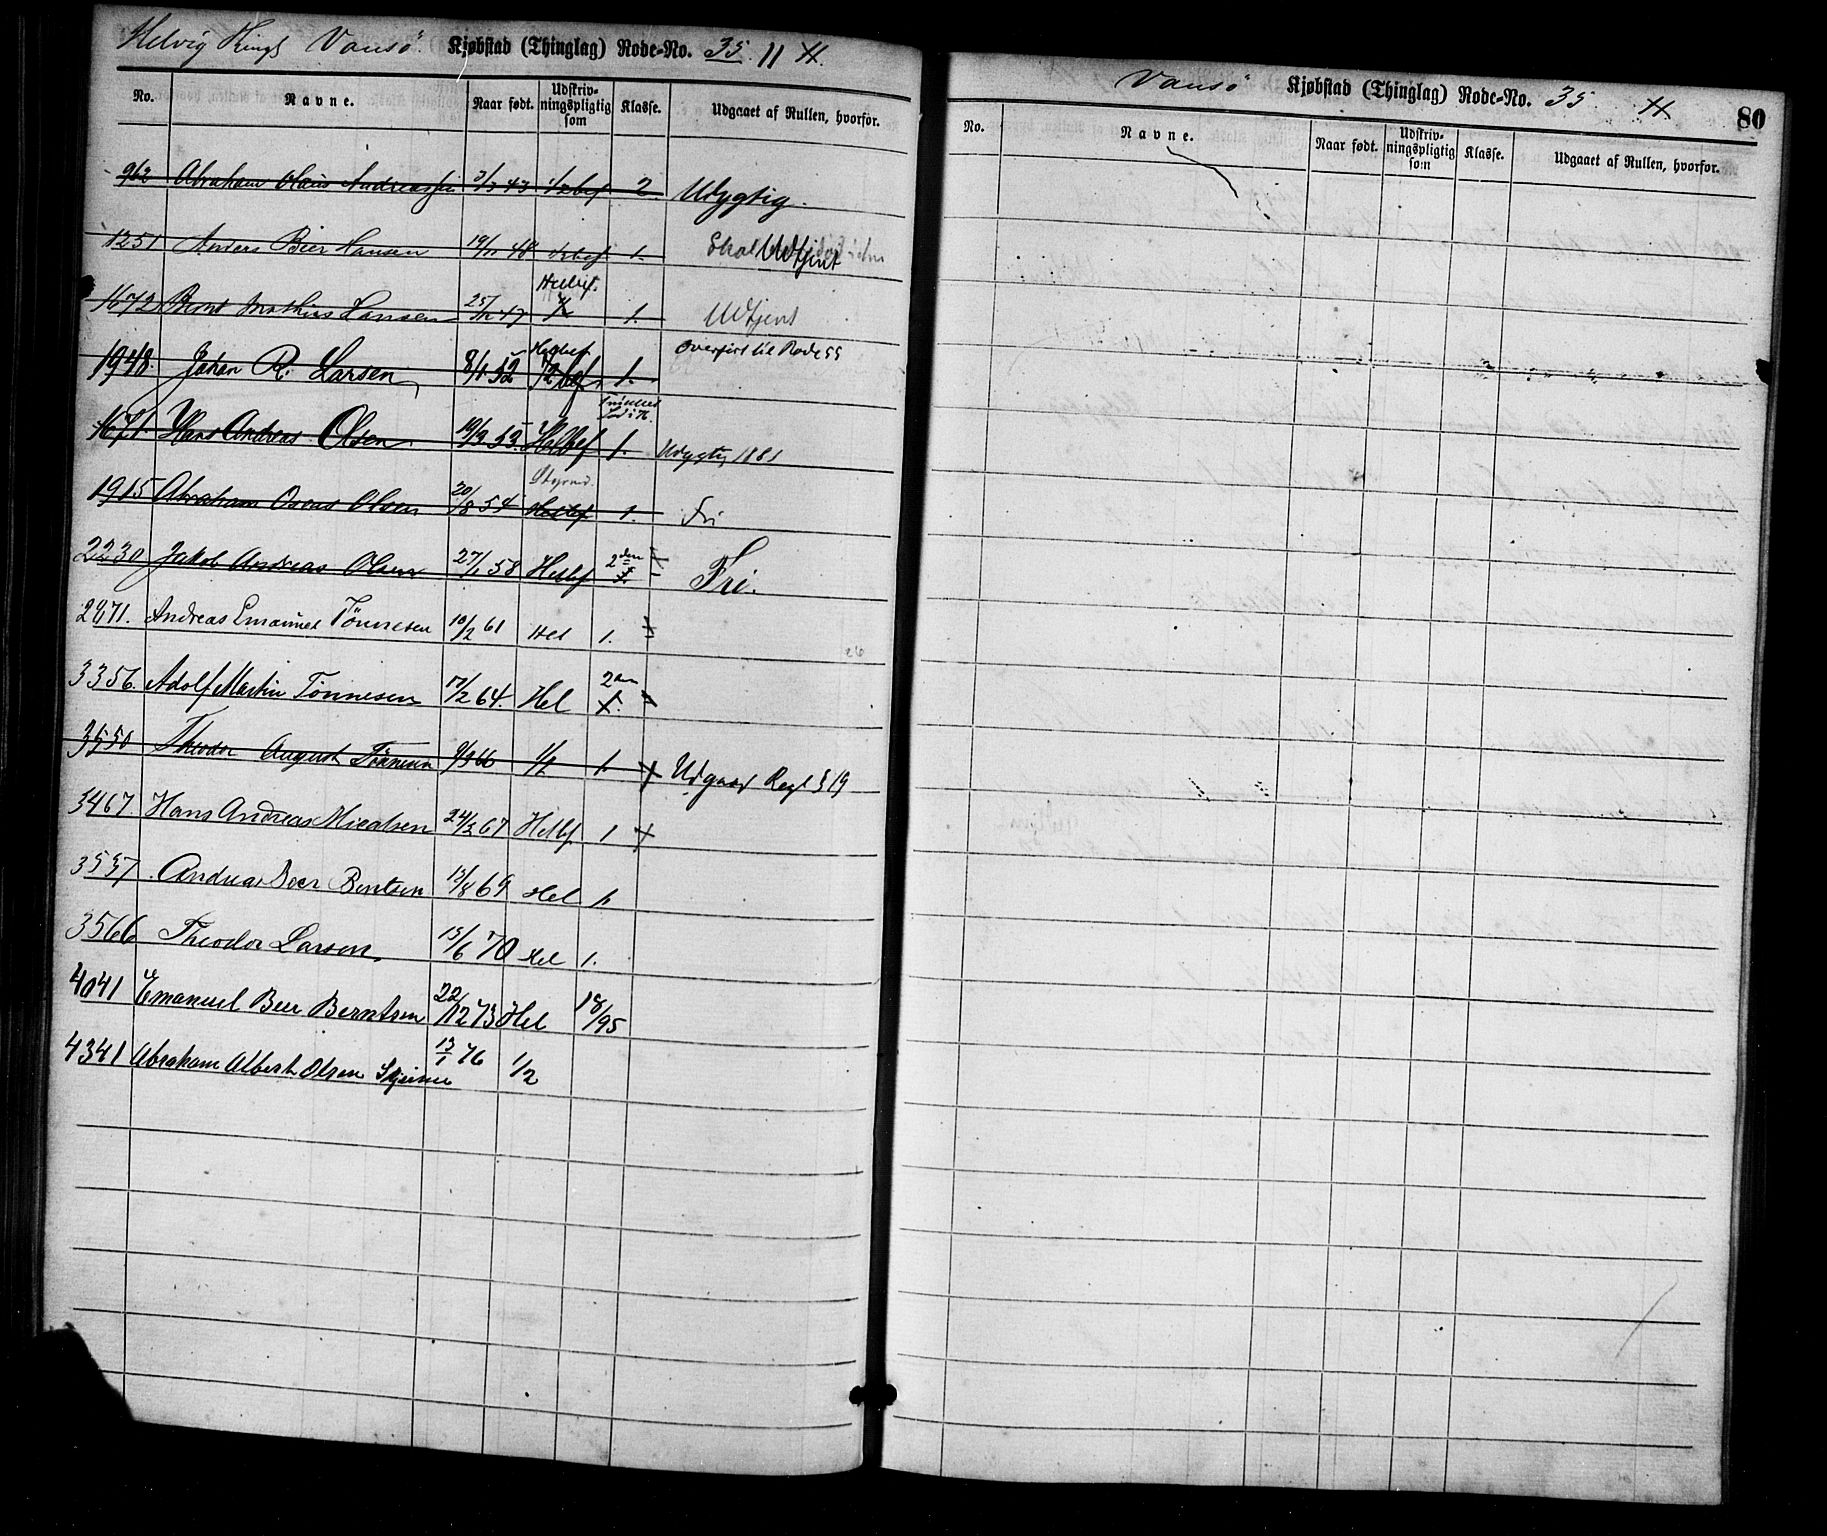 Helvig Vansø Kjøbstad (Thinglag) Rode-No. 35 11
No. Navne. Naar født. Udskriv-ningspligtig som Klasse. Udgaaet af Rullen, hvorfor.
962 Abraham Olaus Andreassen 3/3 43 1/2bef 2 Udygtig.
1251 Anders Beer Hansen 19/11 48 1. Udtjent
1672 Bernt Mathias Hansen 25/12 47 1. Udtjent
1948. Johan R. Larsen 8/1 52 1/2 bef. 1. Overført til Rode 55
1671. Hans Andreas Olsen 19/3 53. Halvbef 1. Udygtig 1881
1915 Abraham Olsen 20/8 54 Helbef 1. Fri
2230 Jakob Andreas Olsen 27/1 58 Helbf 2den Fri.
2871. Andreas Emanuel Tönnesen 10/2 61 Hel 1.
3356. Adolf Martin Tönnesen 17/2 64. Hel 2den
3550 Theodor August Tönnesen 9/9 66 1/2 1. Udgaar Regl § 19
3467. Hans Andreas Micalsen 24/3 67 Helbf 1
3537. Andreas Beer Berntsen 13/8 69 Hel 1.
3566 Theodor Larsen 15/6 70 Hel 1.
4041 Emanuel Beer Berntsen 22/12 73 Hel 18/95
4341 Abraham Albert Olsen 13/1 76 1/2
Vansø Kjøbstad (Thinglag) Rode-No. 35 80
No. Navne. Naar født. Udskriv-ningspligtig som Klasse. Udgaaet af Rullen, hvorfor.